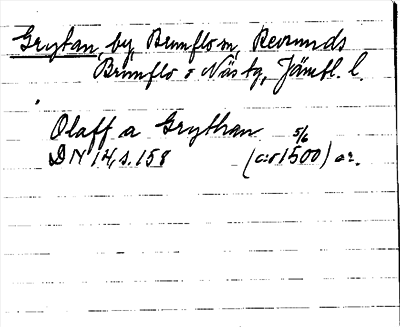 Grytan, by, Brunflo sn, Revsunds
Brunflo o Näs tg, Jämtl. l.
Olaff a Grythan 5/6
DN 14 s. 158 (a. o 1500) or.